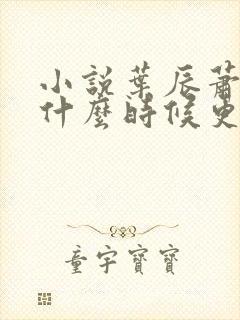 小說葉辰蕭
什麼時候更
童宇寶寶